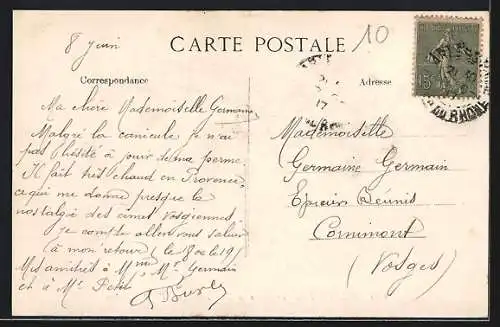 8 juin
10
CARTE POSTALE
Correspondance
Adresse
15c
DU RHÔNE
17
Ma chère Mademoiselle Germaine
Malgré la canicule je n'ai
pas hésité à jouir de ma perme.
Il fait très chaud en Provence
ce qui me donne presque la
nostalgie des cimes Vosgiennes,
je compte aller vous saluer
à mon retour (le 18 ou le 19)
Mes amitiés à Mme, Mr Germain
et à Mr Petit
Mademoiselle
Germaine Germain
Epiciers Réunis
Cornimont
(Vosges)